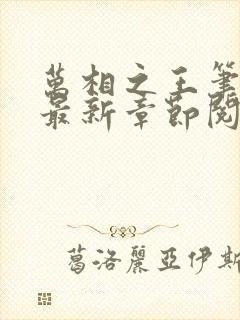 萬相之王筆
最新章節閱
葛洛麗亞伊斯